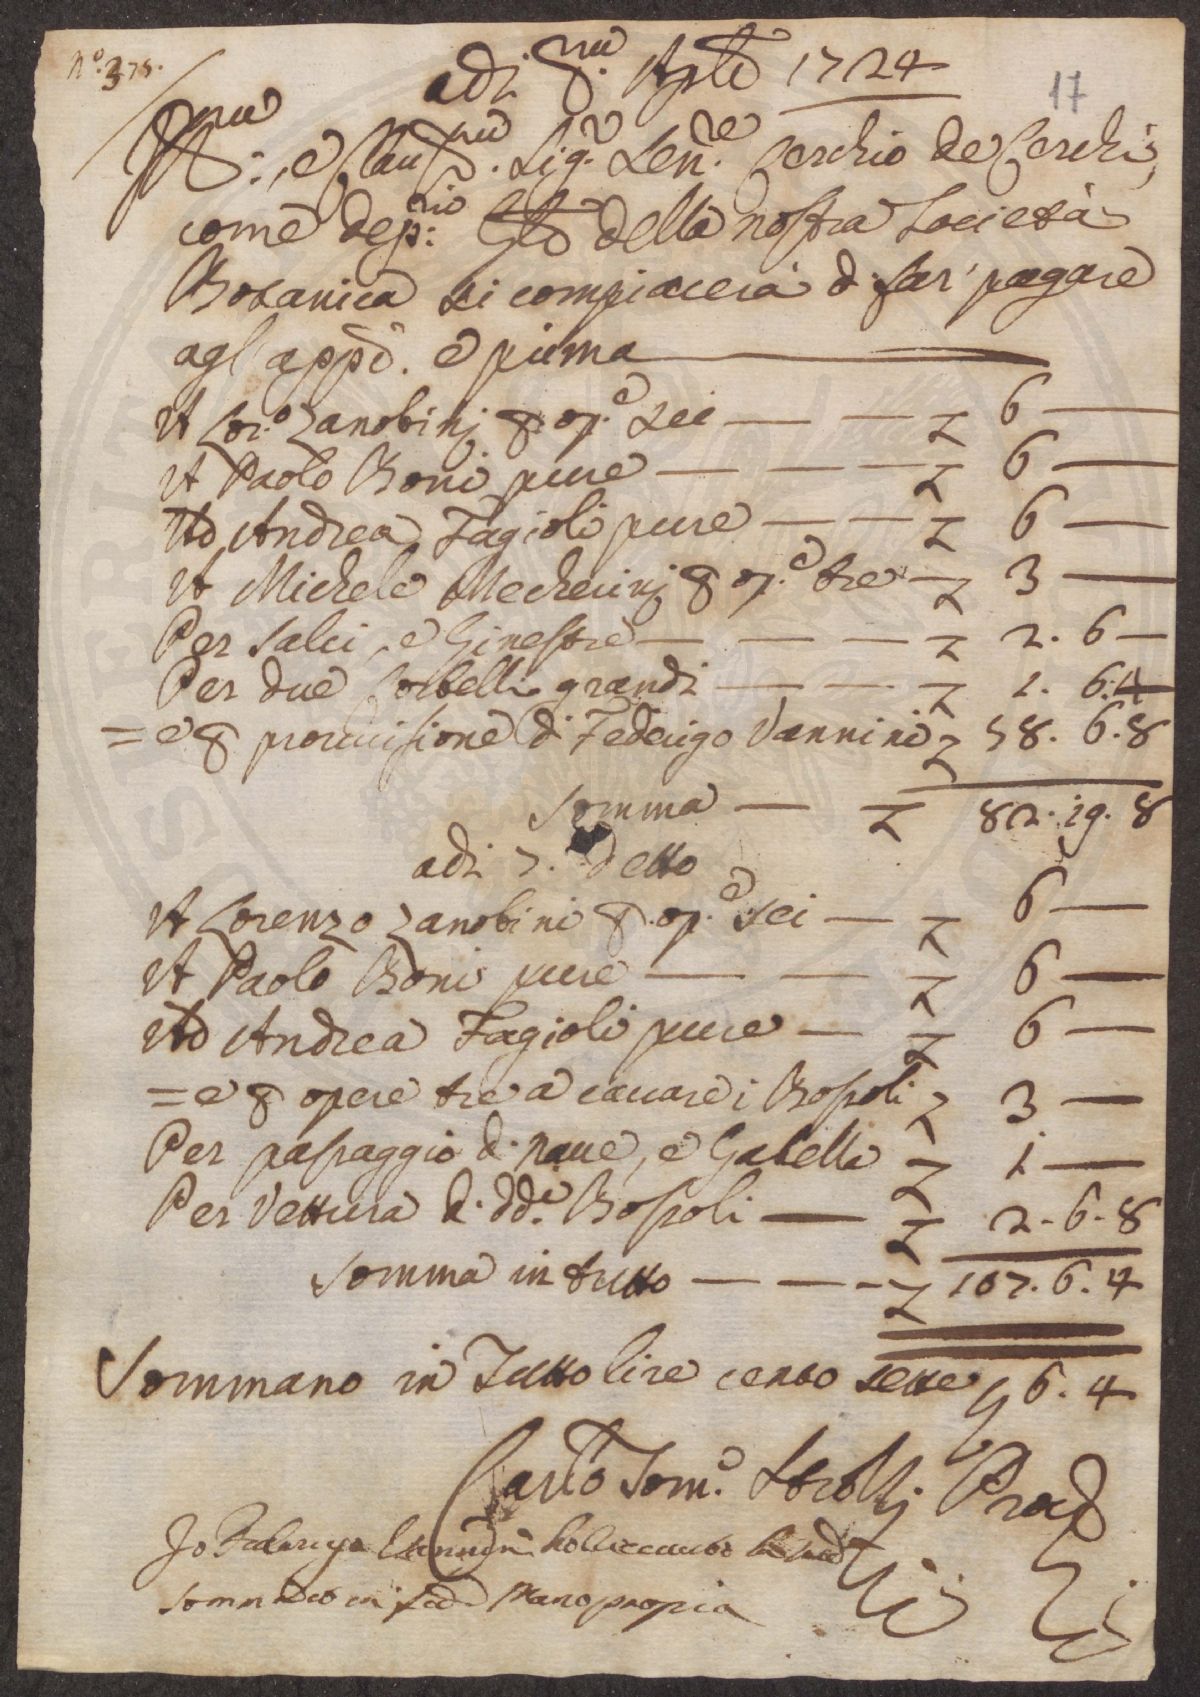 N.º 375.
adi p.mo Aple 1724
17
Ill.mo, e Clar.mo Sig.r Sen.re Cerchio de Cerchi,
come dep.rio Gle della nostra Società
Botanica si compiacerà d. far' pagare
agl'appiè. e prima
A Lor.o Zanobinj p op.e sei — — — £ 6 —
A Paolo Boni pure — — — £ 6 —
Ad Andrea Fagioli pure — — £ 6 —
A Michele Mecherinj p op.e tre — £ 3 —
Per Salci, e Ginestre — — — £ 2. 6 —
Per due Corbelli grandi — — — £ 1. 6. 4
= e p provisione d Federigo Vannini £ 58. 6. 8
Somma — £ 82. 19. 8
adi 7. detto
A Lorenzo Zanobini p op.e sei — £ 6 —
A Paolo Boni pure — — £ 6 —
Ad Andrea Fagioli pure — £ 6 —
= e p opere tre a cavare i Bossoli £ 3 —
Per passaggio d. nave, e Gabelle — £ 1 —
Per Vettura d. dd.i Bossoli — £ 2. 6. 8
Somma in tutto — — — £ 107. 6. 4
Sommano in Tutto lire cento sette 6. 4
Carlo Tom.o Strozzj
Jo Federigo Vannini ho riceuuto la sud
somma mano propria